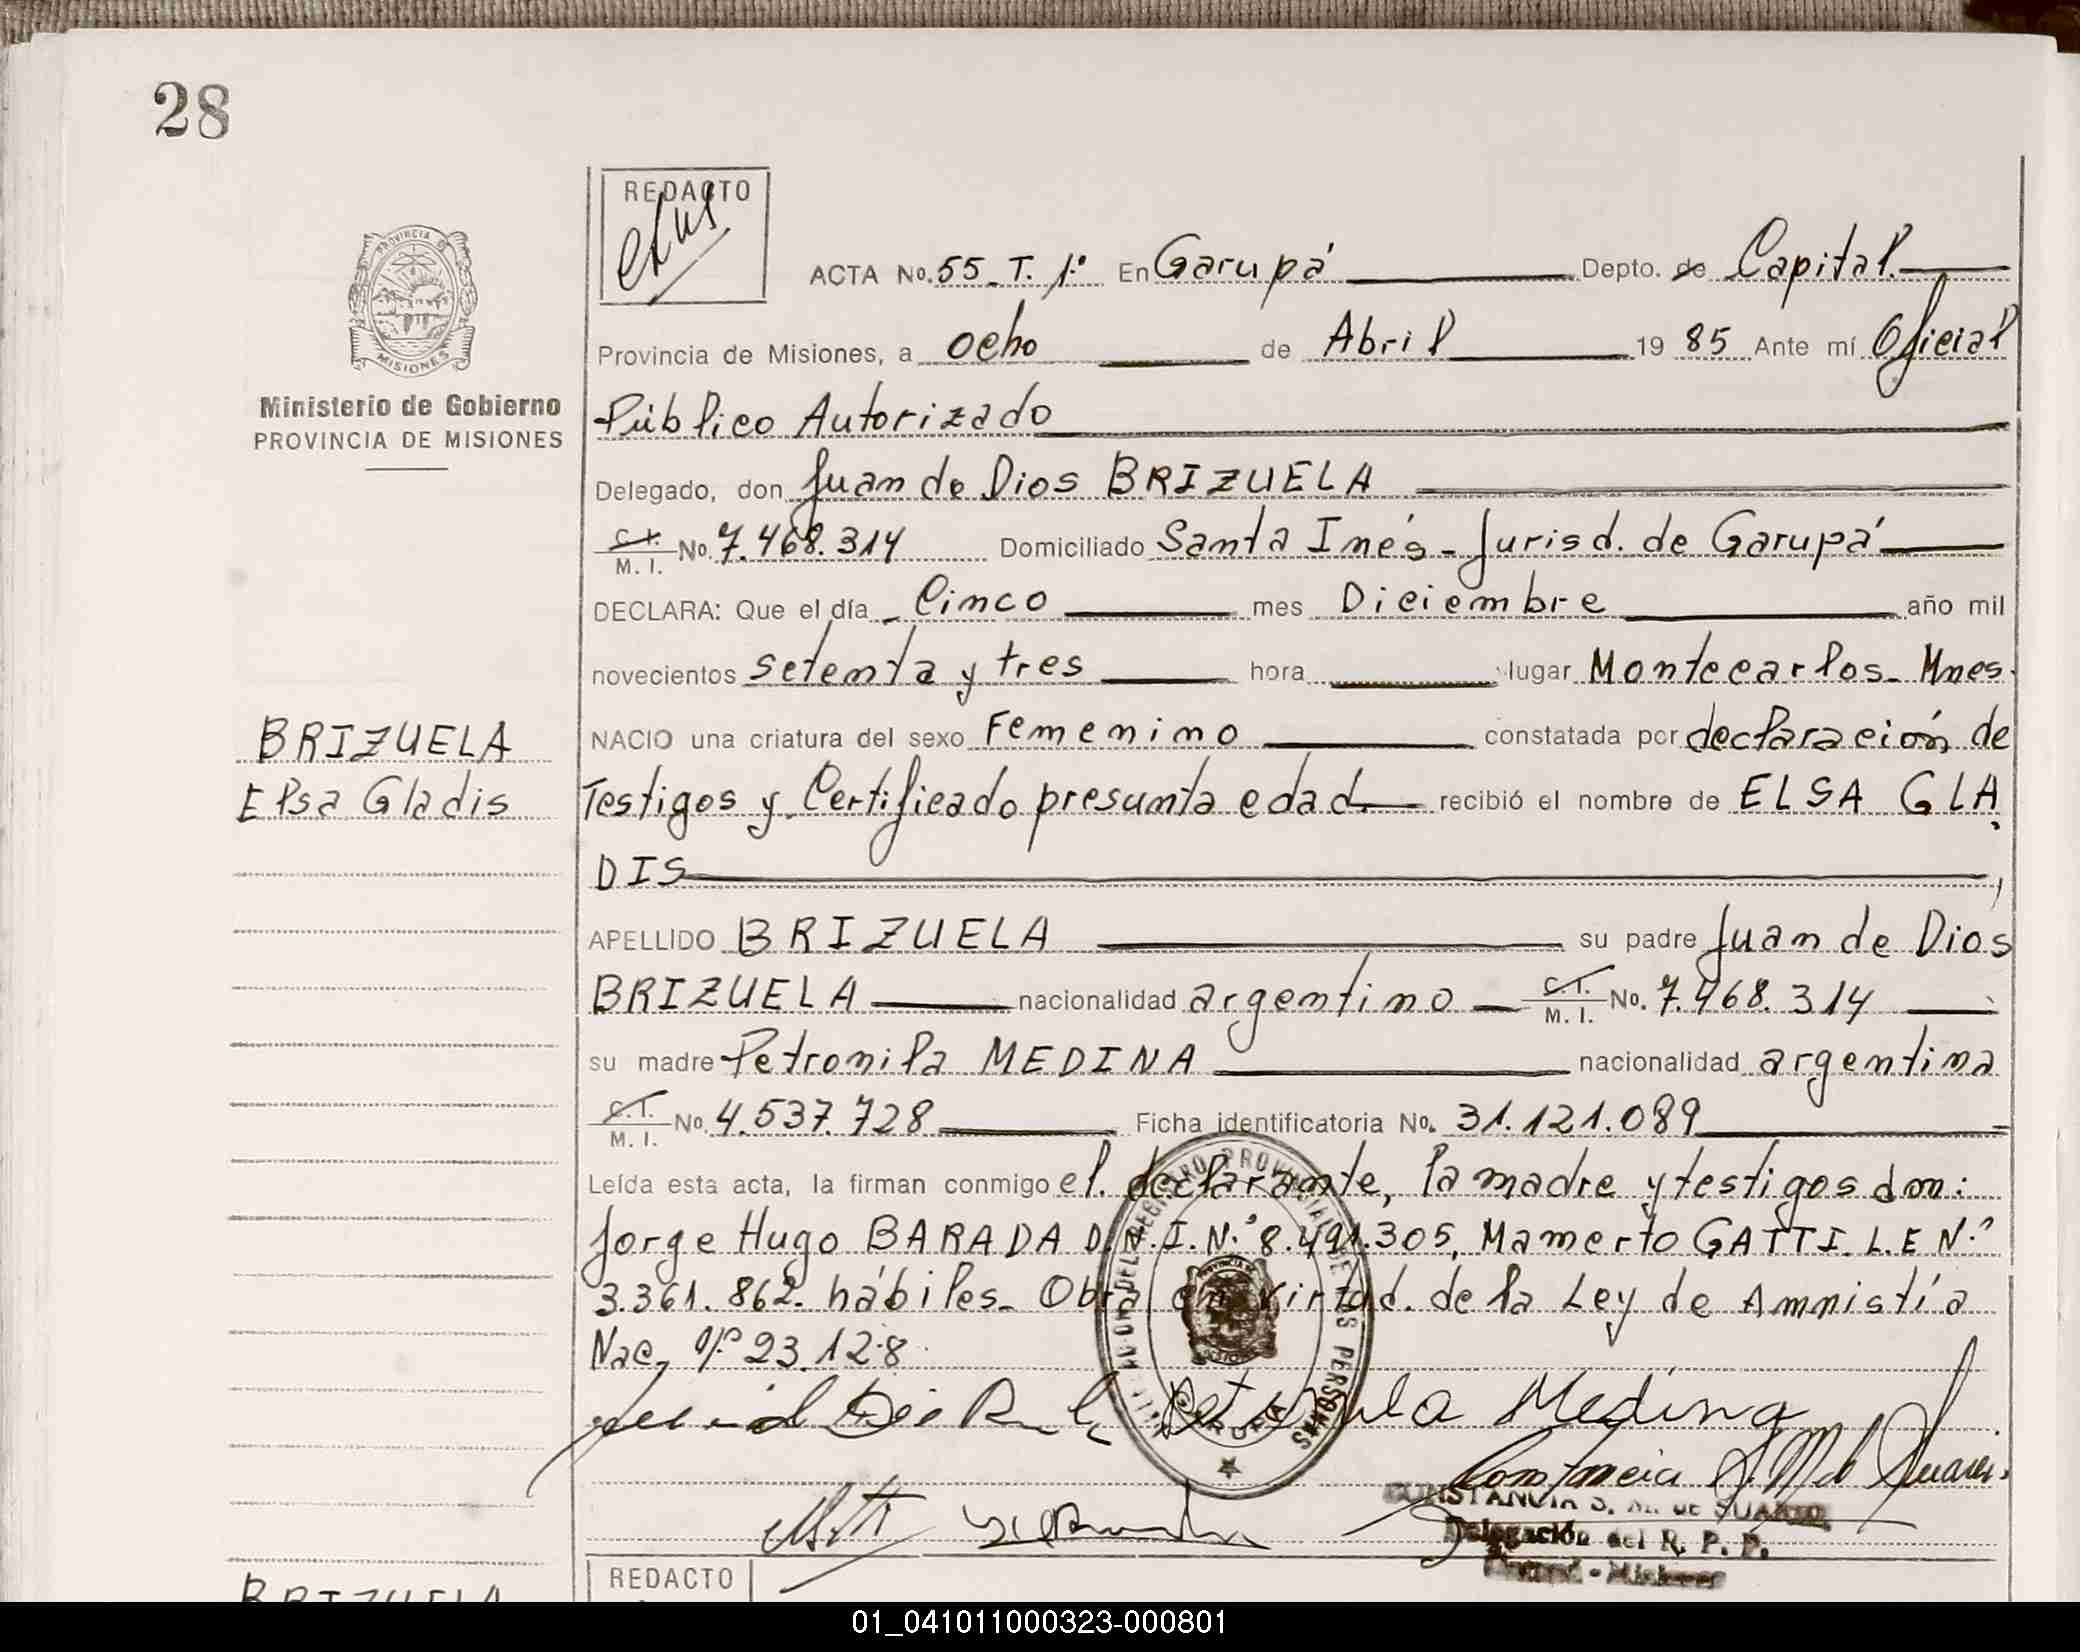 28
REDACTO
ACTA No. 55 - T. 1º En Garupá Depto. de Capital.
Provincia de Misiones, a ocho de Abril 19 85 Ante mí Oficial
Público Autorizado
Delegado, don Juan de Dios BRIZUELA
C. I. M. I. No. 7.468.314 Domiciliado Santa Inés - Jurisd. de Garupá
DECLARA: Que el día Cinco mes Diciembre año mil
novecientos setenta y tres hora lugar Montecarlos - Mnes.
NACIO una criatura del sexo Femenino constatada por declaración de
Testigos y Certificado presunta edad. recibió el nombre de ELSA GLA
DIS
APELLIDO BRIZUELA su padre Juan de Dios
BRIZUELA nacionalidad argentino C. I. M. I. No. 7.468.314
su madre Petronila MEDINA nacionalidad argentina
C. I. M. I. No. 4.537.728 Ficha identificatoria No. 31.121.089
Leída esta acta, la firman conmigo el declarante, la madre y testigos don:
Jorge Hugo BARADA D.N.I.Nº 8.491.305, Mamerto GATTI. L.E Nº
3.361.862. hábiles. Obra en virtud de la Ley de Amnistía
Nac, Nº 23.128.
Petronila Medina
CONSTANCIA S. M. de SUAREZ
Delegación del R. P. P.
Garupá - Misiones
PROVINCIA DE MISIONES
Ministerio de Gobierno
PROVINCIA DE MISIONES
BRIZUELA
Elsa Gladis
REGISTRO PROVINCIAL DE LAS PERSONAS
GARUPA
REDACTO
BRIZUELA
01_041011000323-000801